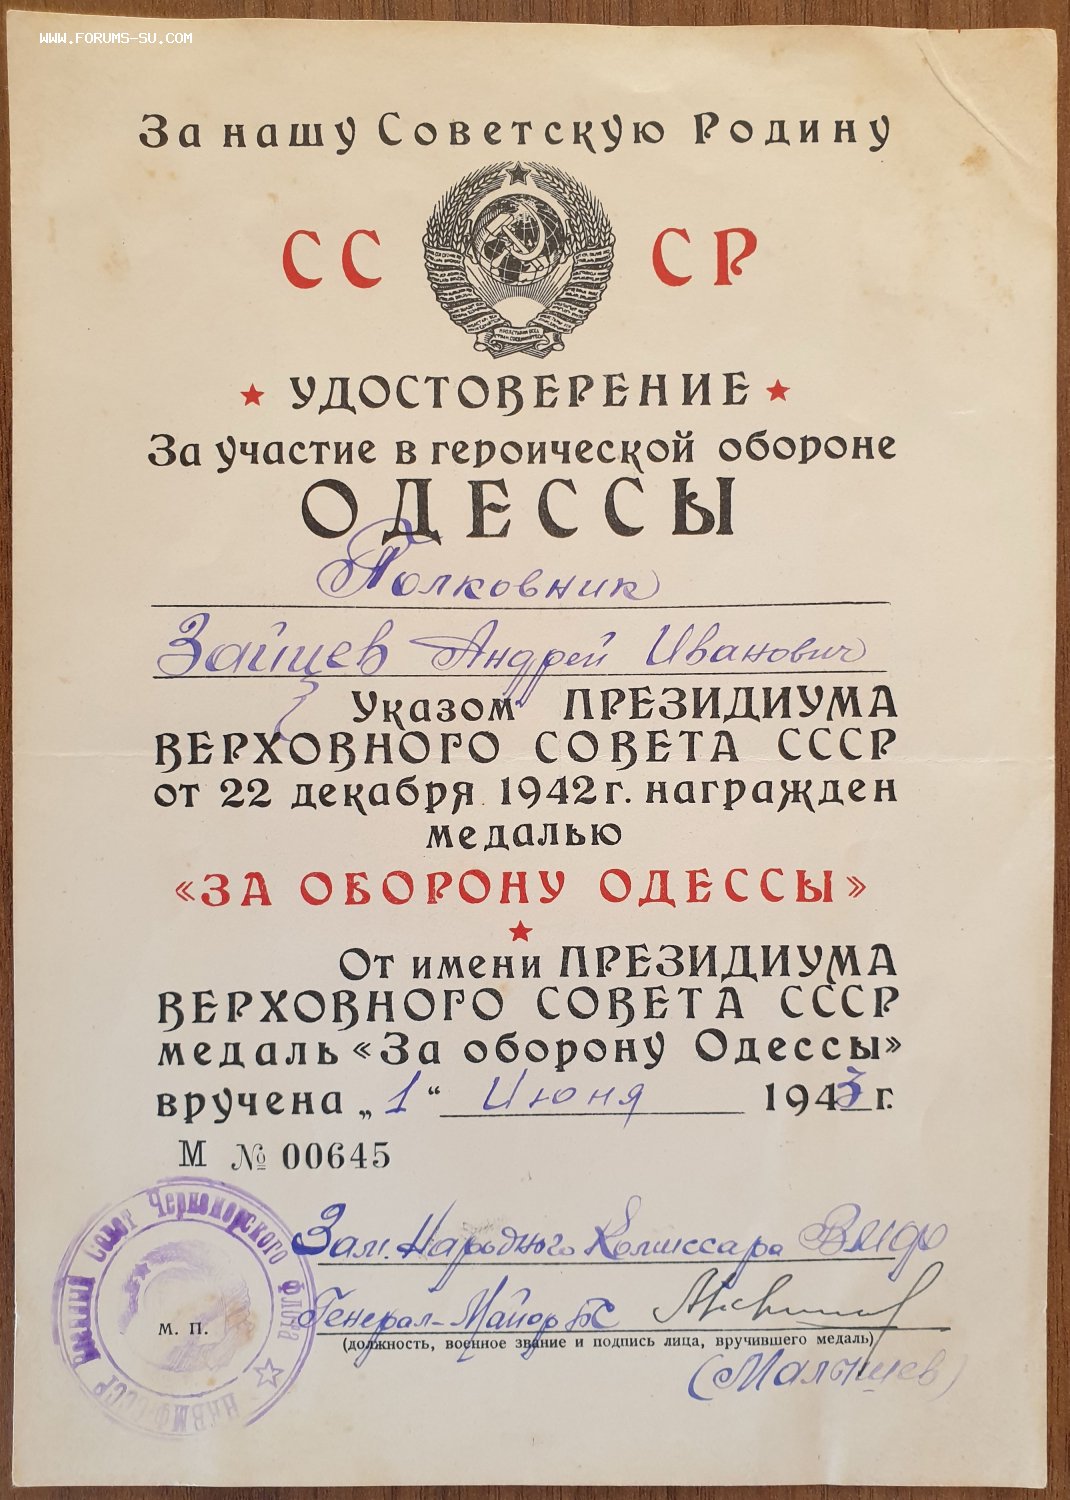 WWW.FORUMS-SU.COM
За нашу Советскую Родину
СС СР
УДОСТОВЕРЕНИЕ
За участие в героической обороне
ОДЕССЫ
Полковник
Зайцев Андрей Иванович
Указом ПРЕЗИДИУМА
ВЕРХОВНОГО СОВЕТА СССР
от 22 декабря 1942 г. награжден
медалью
«ЗА ОБОРОНУ ОДЕССЫ»
От имени ПРЕЗИДИУМА
ВЕРХОВНОГО СОВЕТА СССР
медаль «За оборону Одессы»
вручена „1“ Июня 1943 г.
М № 00645
Военный Совет Черноморского Флота
НКВМФ СССР
М. П.
Зам. Народного Комиссара
Генерал-Майор БС
(должность, военное звание и подпись лица, вручившего медаль)
(Малышев)